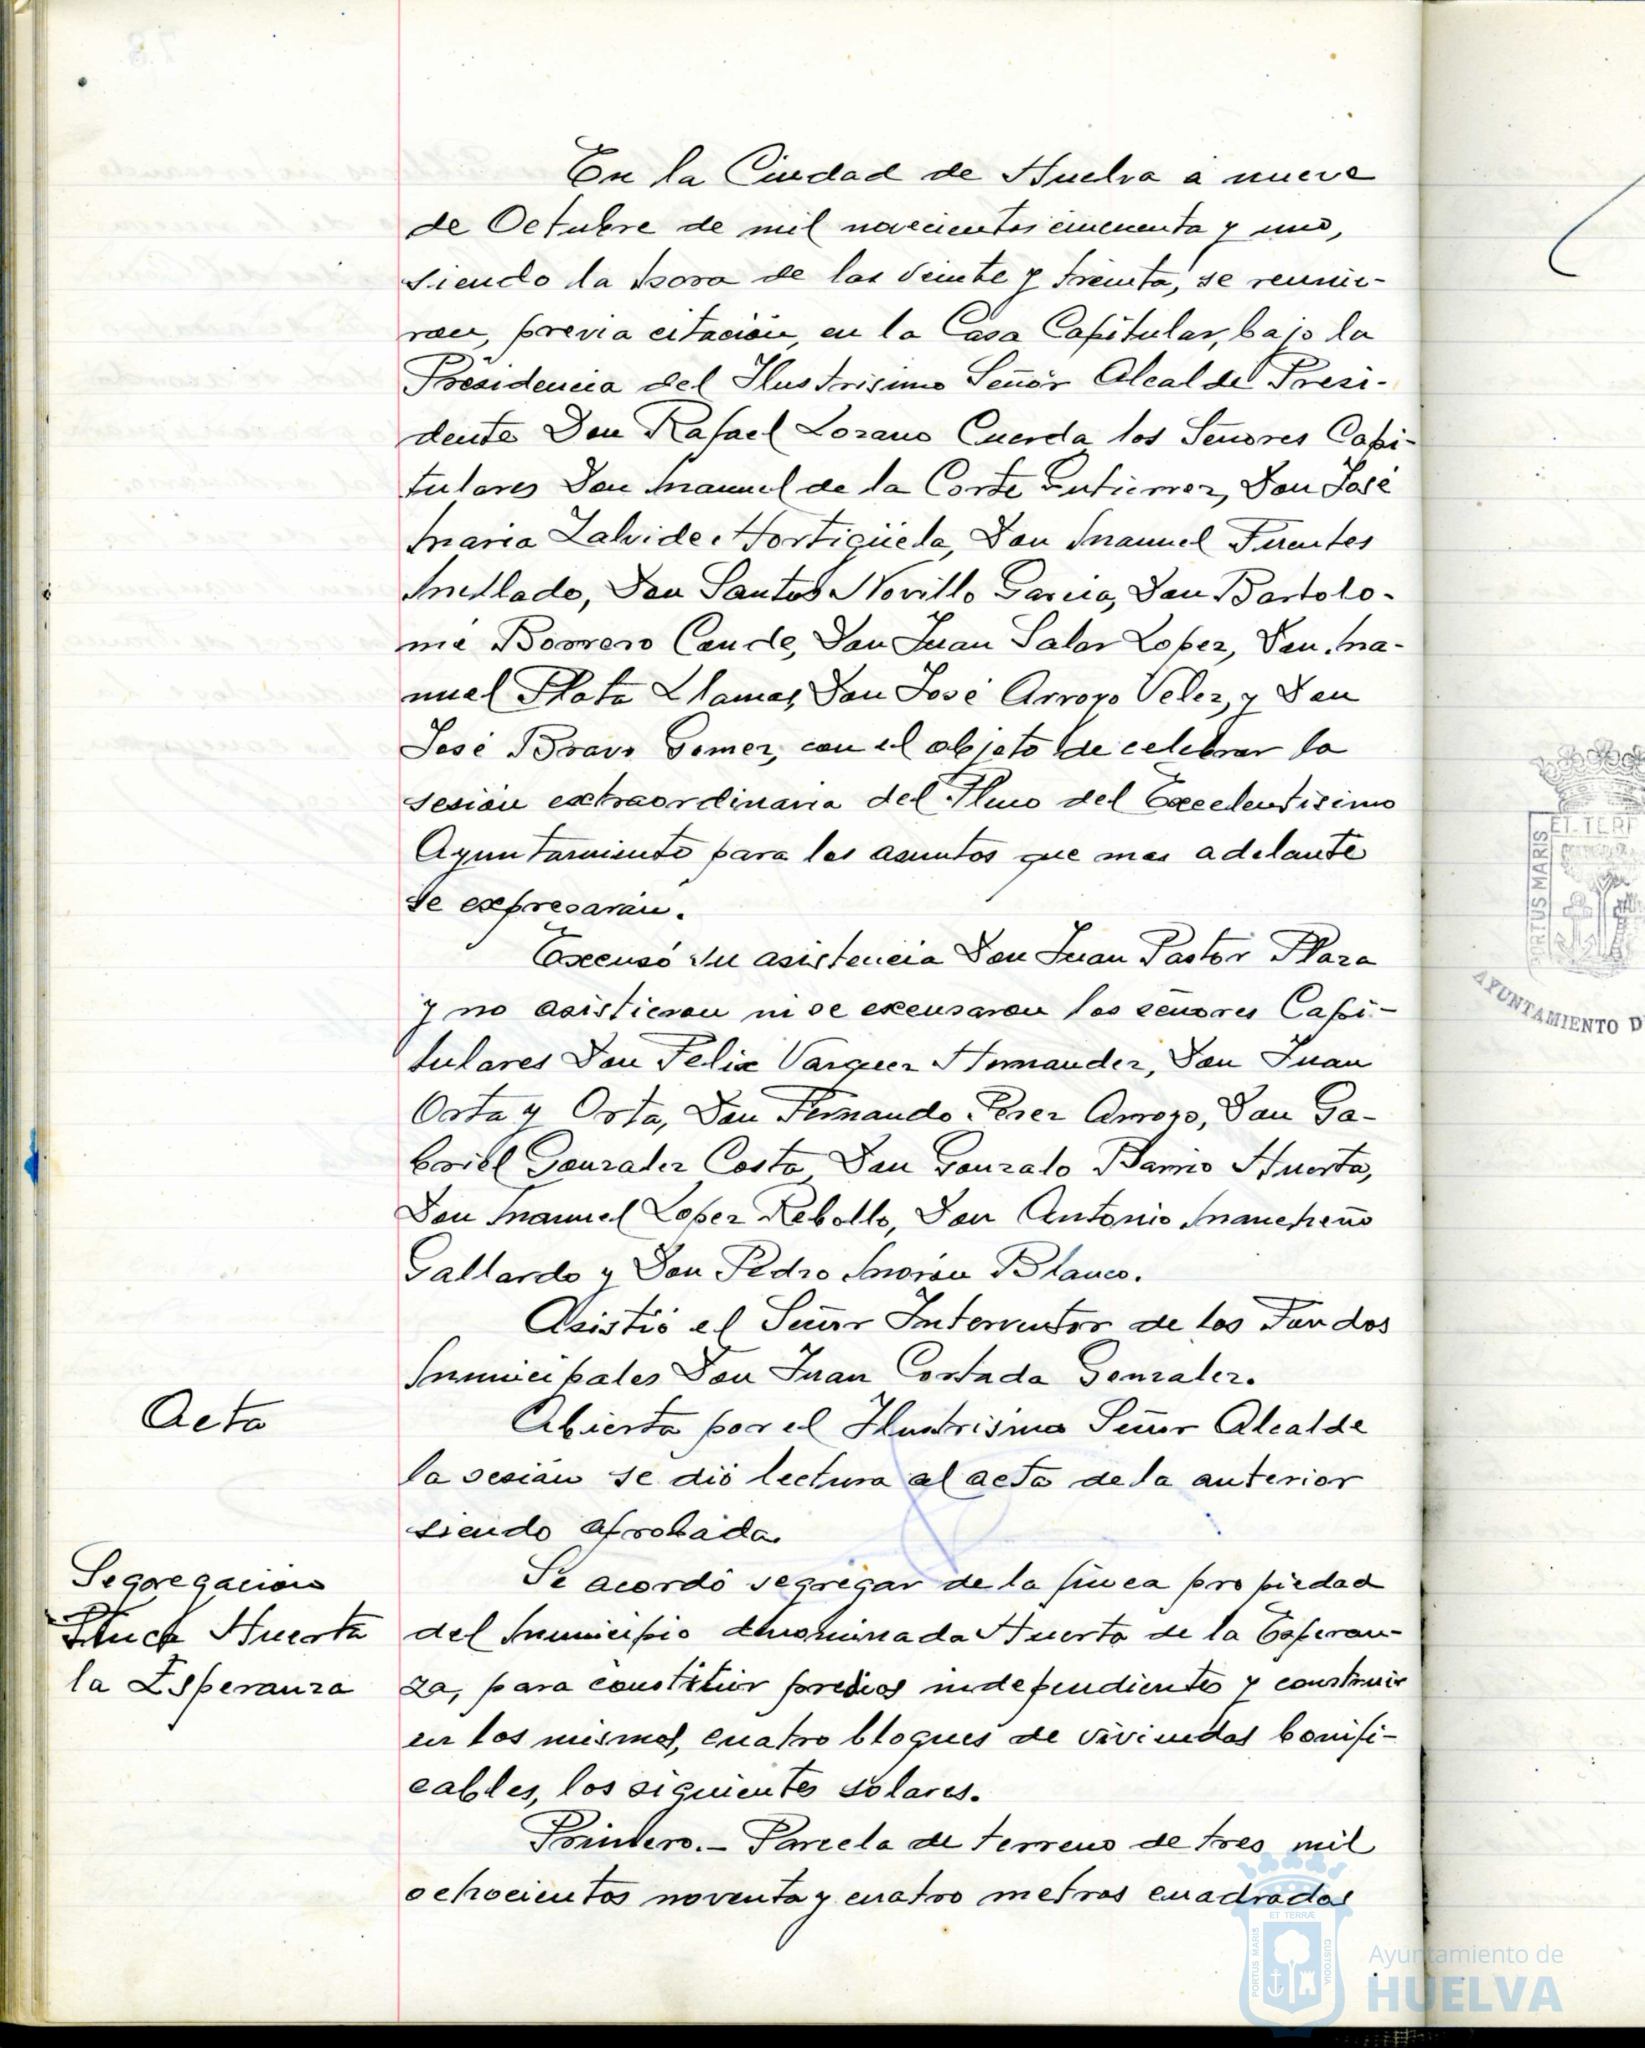 En la Ciudad de Huelva a nueve
de Octubre de mil novecientos cincuenta y uno,
siendo la hora de las veinte y treinta, se reunie-
ron, previa citación, en la Casa Capitular, bajo la
Presidencia del Ilustrisimo Señor Alcalde Presi-
dente Don Rafael Lozano Cuerda los Señores Capi-
tulares Don Manuel de la Corte Gutierrez, Don José
Maria Zalvide Hortigüela, Don Manuel Fuentes
Mellado, Don Santos Novillo Garcia, Don Bartolo-
mé Borrero Conde, Don Juan Salas Lopez, Don Ma-
nuel Plata Llamas, Don José Arroyo Velez, y Don
José Bravo Gomez, con el objeto de celebrar la
sesión extraordinaria del Pleno del Excelentisimo
Ayuntamiento para los asuntos que mas adelante
se expresarán.
Excusó su asistencia Don Juan Pastor Plaza
y no asistieron ni se excusaron los señores Capi-
tulares Don Felix Vazquez Hernandez, Don Juan
Orta y Orta, Don Fernando Perez Arroyo, Don Ga-
briel Gonzalez Costa, Don Gonzalo Barrio Huerta,
Don Manuel Lopez Rebollo, Don Antonio Mancheño
Gallardo y Don Pedro Morón Blanco.
Asistió el Señor Interventor de los Fondos
Municipales Don Juan Cortada Gonzalez.
Acta
Abierta por el Ilustrisimo Señor Alcalde
la sesión se dió lectura al acta de la anterior
siendo aprobada.
Segregación
Finca Huerta
la Esperanza
Se acordó segregar de la finca propiedad
del Municipio denominada Huerta de la Esperan-
za, para constituir predios independientes y construir
en los mismos, cuatro bloques de viviendas bonifi-
cables, los siguientes solares.
Primero.- Parcela de terreno de tres mil
ochocientos noventa y cuatro metros cuadrados
PORTUS MARIS
ET TERRÆ
CUSTODIA
Ayuntamiento de
HUELVA
PORTUS MARIS
AYUNTAMIENTO